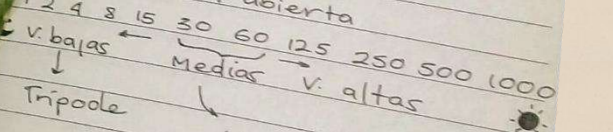 abierta
2 4 8 15 30 60 125 250 500 1000
v. bajas Medias v. altas
Tripode